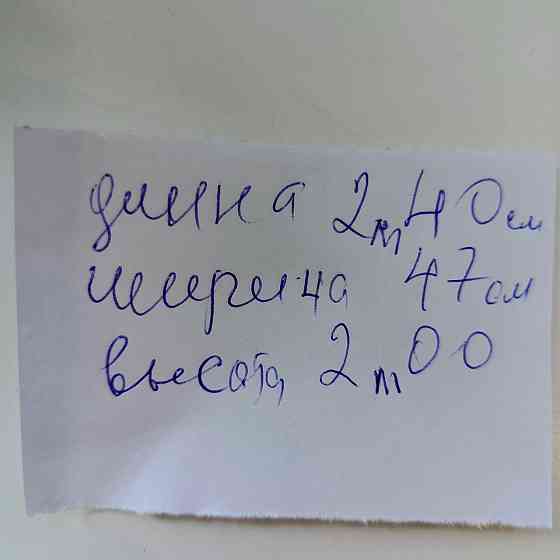 длинна 2m40см
ширина 47см
высота 2m00